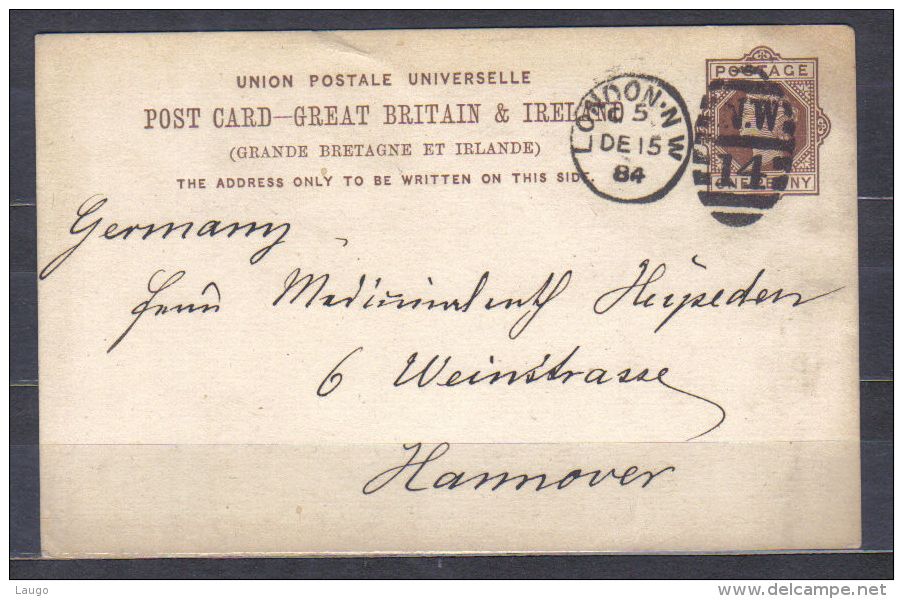 UNION POSTALE UNIVERSELLE
POST CARD—GREAT BRITAIN & IRELAND
(GRANDE BRETAGNE ET IRLANDE)
THE ADDRESS ONLY TO BE WRITTEN ON THIS SIDE.
POSTAGE
ONE PENNY
LONDON·N W
5
DE 15
84
N.W.
14
Germany
Herrn Medicinalrath Heÿseden
6 Weinstrasse
Hannover
Laugo
delcampe.net